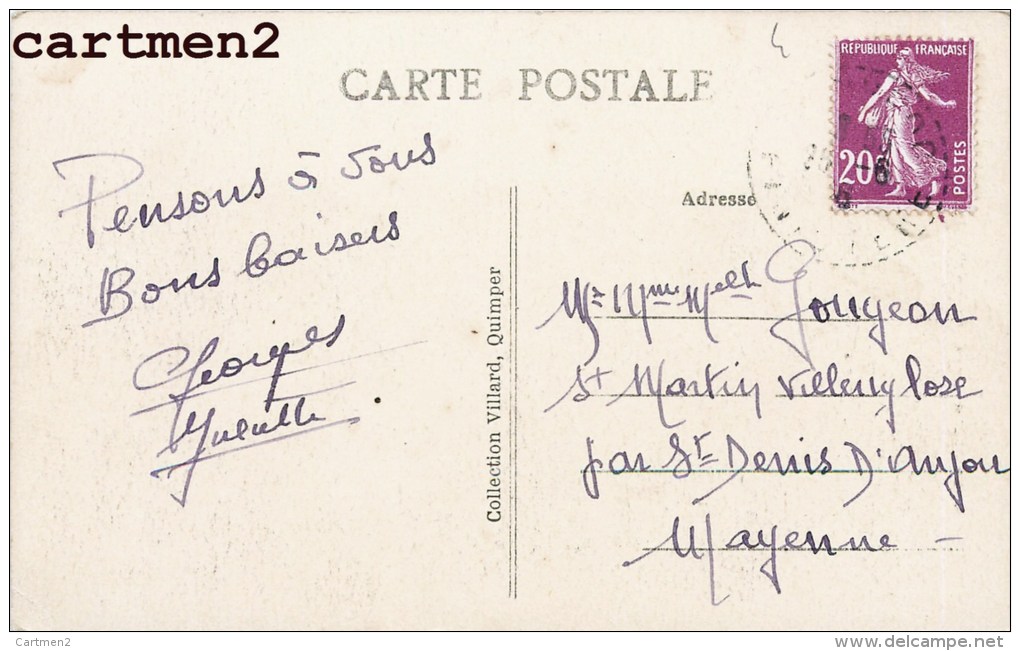 cartmen2
CARTE POSTALE
REPUBLIQUE FRANÇAISE
20c
POSTES
Pensons à vous
Bons baisers
Georges
Adresse
Mr Mme Melle Gougeon
St Martin Villenglose
par St Denis D'Anjou
Mayenne
Collection Villard, Quimper
Cartmen2
www.delcampe.net